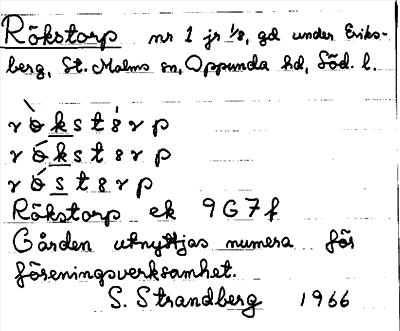 Rökstorp nr 1 jr 1/8, gd under Eriks-
berg, St. Malms sn, Oppunda hd, Söd. l.
rò̱kstö́rp
rókstörp
róstörp
Rökstorp ek 9G7f
Gården utnyttjas numera för
föreningsverksamhet.
S. Strandberg 1966